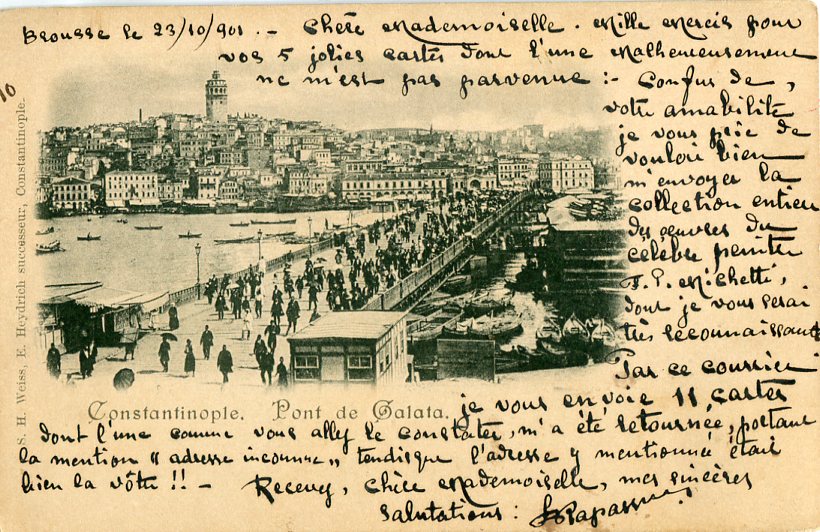 Brousse le 23/10/901.- Chère Mademoiselle. Mille Mercis pour
vos 5 jolies cartes dont l'une Malheureusement
ne m'est pas parvenue :- Confus de
votre amabilité
je vous prie de
vouloir bien
m'envoyer la
collection entière
des œuvres du
célèbre peintre
F. P. Michetti,
dont je vous serai
très reconnaissant
Par ce courrier
je vous envoie 11 cartes
dont l'une comme vous allez le constater, m'a été retournée, portant
la mention "adresse inconnue" tendisque l'adresse y mentionnée était
bien la vôtre !! -
Recevez, chère Mademoiselle, mes sincères
salutations :
Constantinople. Pont de Galata.
S. H. Weiss, E. Heydrich successeur, Constantinople.
10